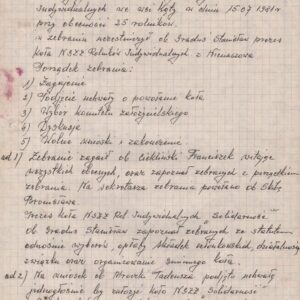 Indywidualnych we wsi Kąty w dniu 15.07 1981r
przy obecności 25 rolników.
w zebraniu uczestniczył ob Gradus Stanisław prezes
koła NSZZ Rolników Indywidualnych z
Porządek zebrania:
1) Zagajenie
2) Podjęcie uchwały o powołaniu koła
3) Wybór komitetu założycielskiego
4) Dyskusja
5) Wolne wnioski i zakończenie
ad 1) Zebranie zagaił ob Cichliński Franciszek witając
wszystkich obecnych, oraz zapoznał zebranych z porządkiem
zebrania. Na sekretarza zebrania powołano ob
Bronisława
Prezes koła NSZZ Rol Indywidualnych „Solidarność"
ob Gradus Stanisław zapoznał zebranych ze statutem
odnośnie wyborów, opłaty składek członkowskich, działalności
związku oraz organizowania koła.
ad 2) Na wniosek ob Tadeusza podjęto uchwałę
jednogłośnie by założyć koło NSZZ Solidarność